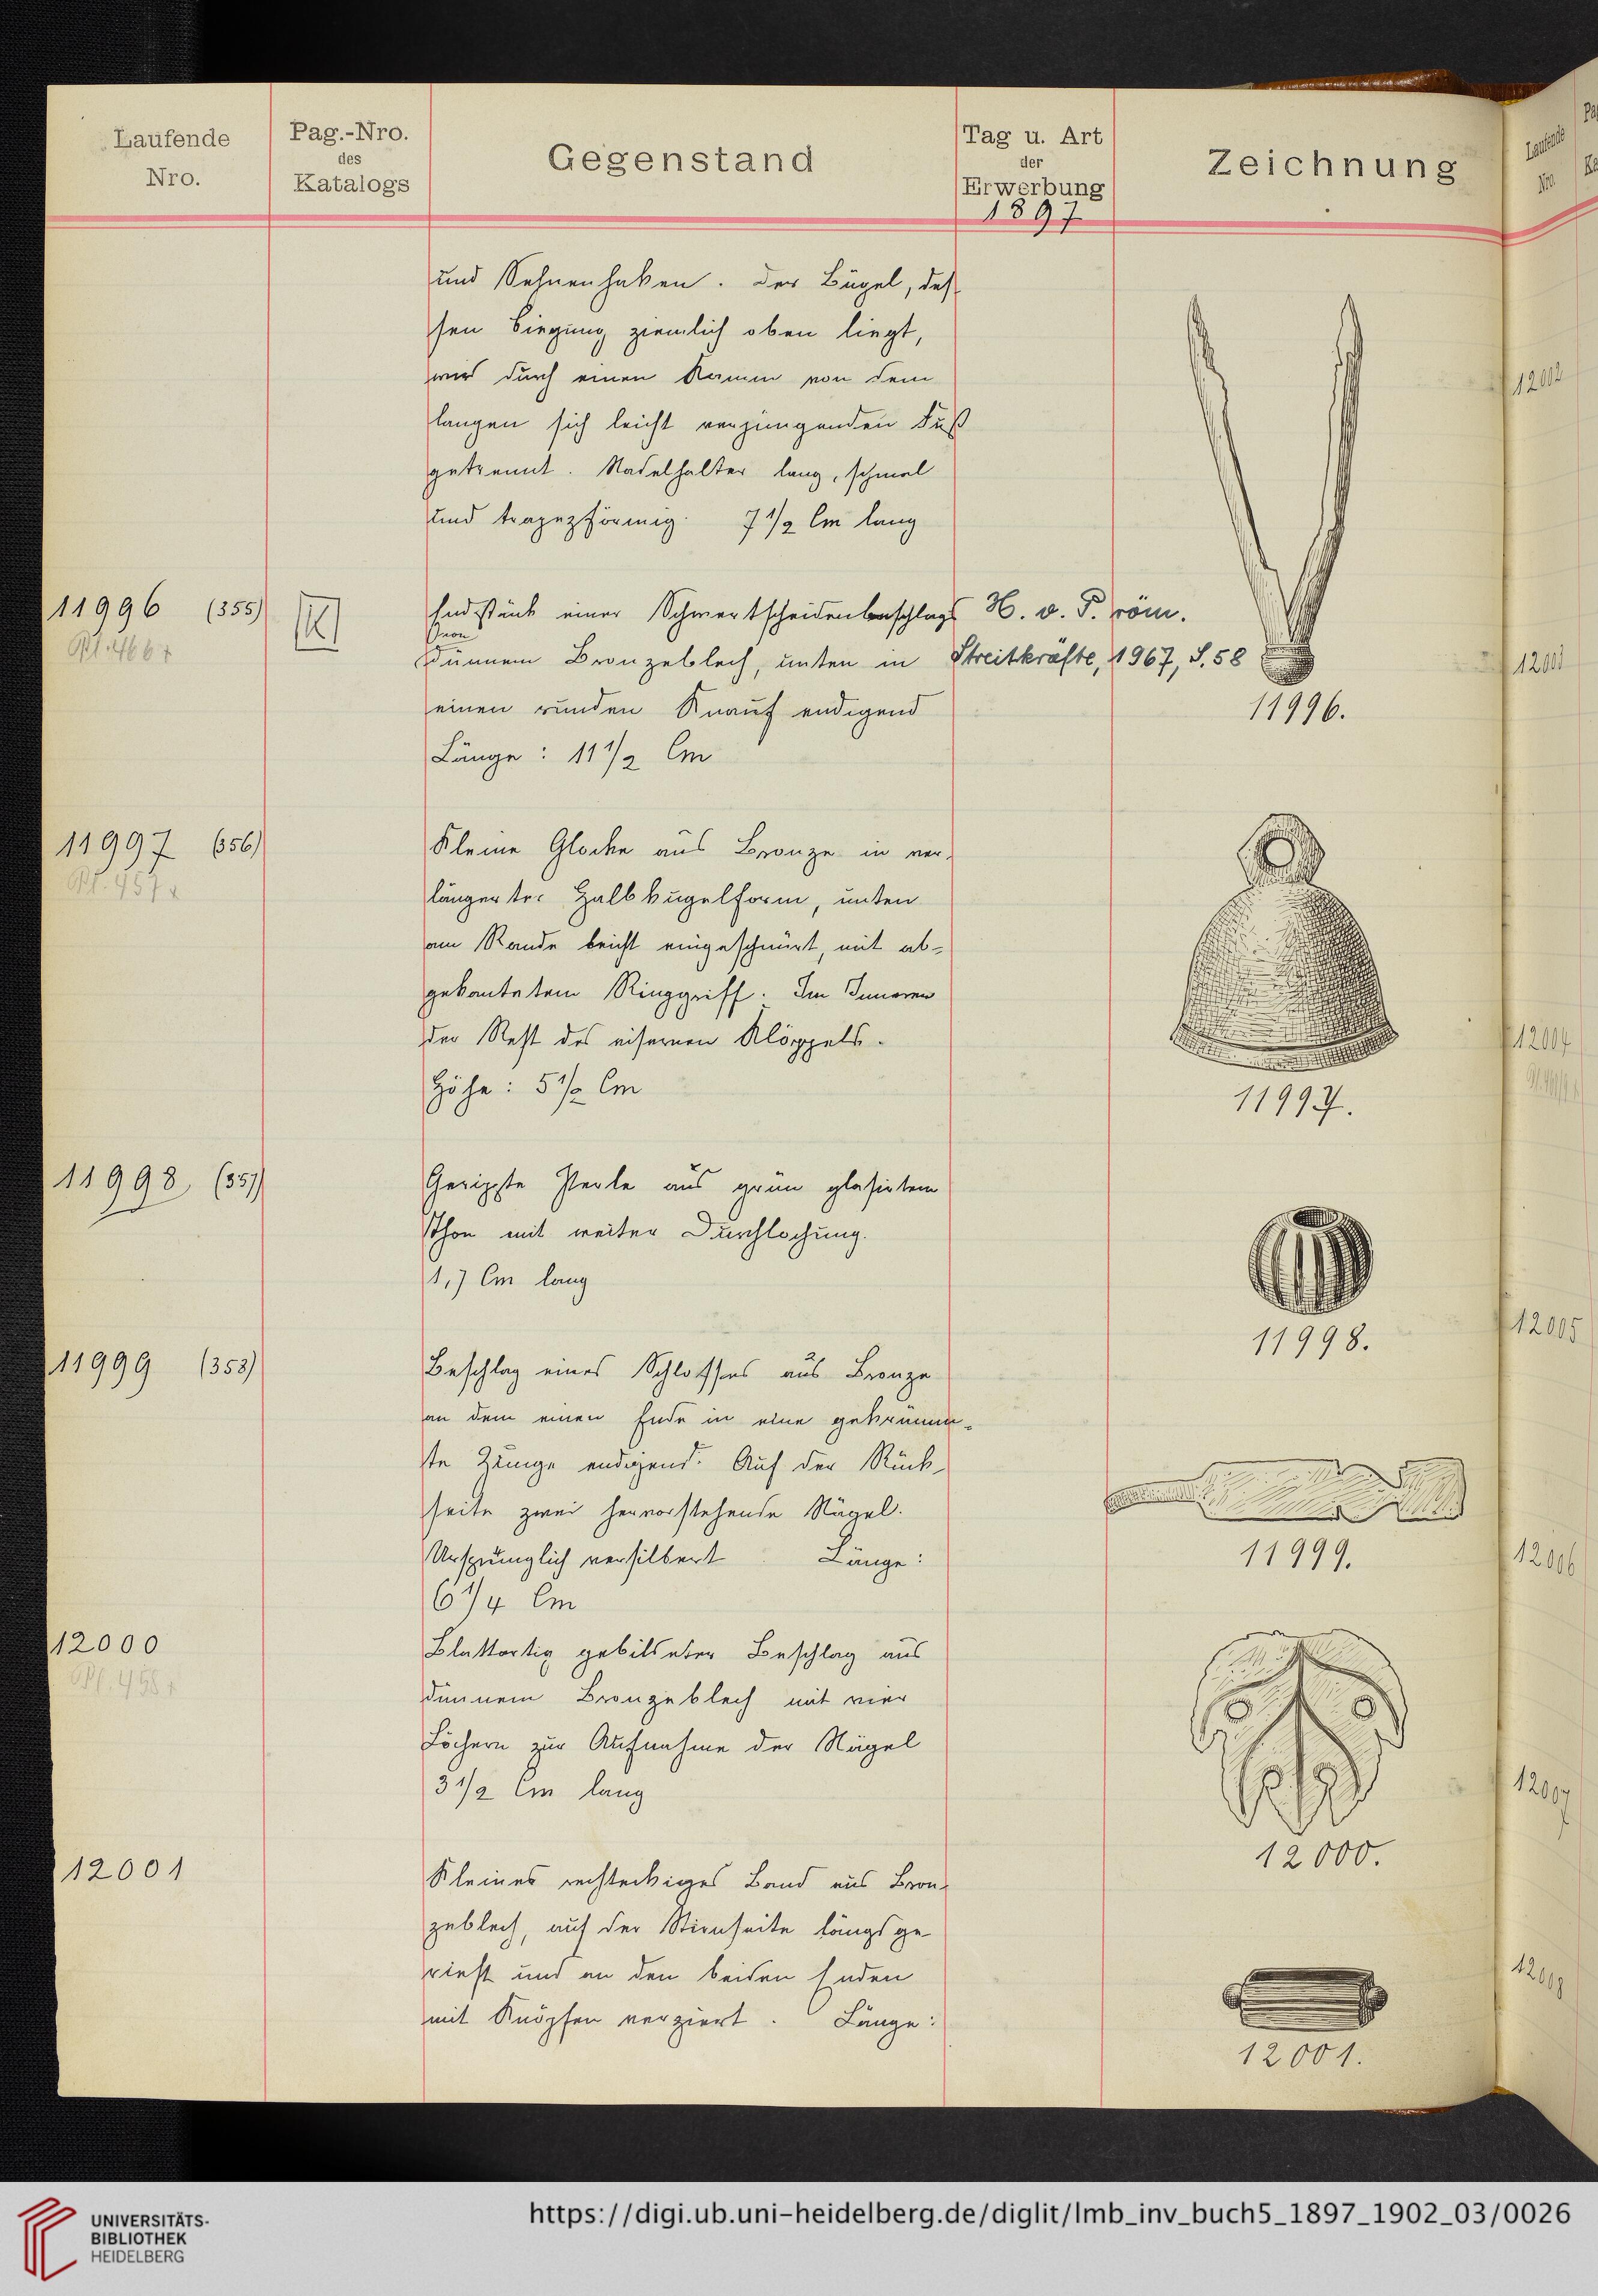 Laufende
Nro.
Pag.-Nro.
des
Katalogs
Gegenstand
Tag u. Art
der
Erwerbung
1897
Zeichnung
und Sehnenhaken. Der Bügel, des-
sen Biegung ziemlich oben liegt,
wird durch einen Kamm von dem
langen sich leicht verjüngenden Fuß
getrennt. Nadelhalter lang, schmal
und trapezförmig. 7 1/2 Cm lang
11996 (355)
Endstück einer Schwertscheidenbeschlags
von
dünnem Bronzeblech, unten in
einen runden Knauf endigend
Länge: 11 1/2 Cm
H. v. P. röm.
Streitkräfte, 1967, S. 58
11996.
11997 (356)
Pl. 457
Kleine Glocke aus Bronze in ver-
längerter Halbkugelform, unten
am Rande leicht eingeschnürt, mit ab-
gekantetem Ringgriff. Im Inneren
der Rest des eisernen Klöppels.
Höhe: 5 1/2 Cm
11997.
11998 (357)
Gerippte Perle aus grün glasirtem
Thon mit weiter Durchlochung.
1,7 Cm lang
11998.
11999 (358)
Beschlag eines Schlosses aus Bronze
an dem einen Ende in eine gekrümm-
te Zunge endigend. Auf der Rück-
seite zwei hervorstehende Nägel.
Ursprünglich versilbert Länge:
6 1/4 Cm
11999.
12000
Pl. 458
Blattartig gebildeter Beschlag aus
dünnem Bronzeblech mit vier
Löchern zur Aufnahme der Nägel
3 1/2 Cm lang
12000.
12001
Kleines rechteckiges Band aus Bron-
zeblech, auf der Stirnseite längsge
rieft und an den beiden Enden
mit Knöpfen verziert. Länge:
12001.
12002
12003
12004
12005
12006
12007
UNIVERSITÄTS-
BIBLIOTHEK
HEIDELBERG
https://digi.ub.uni-heidelberg.de/diglit/lmb_inv_buch5_1897_1902_03/0026